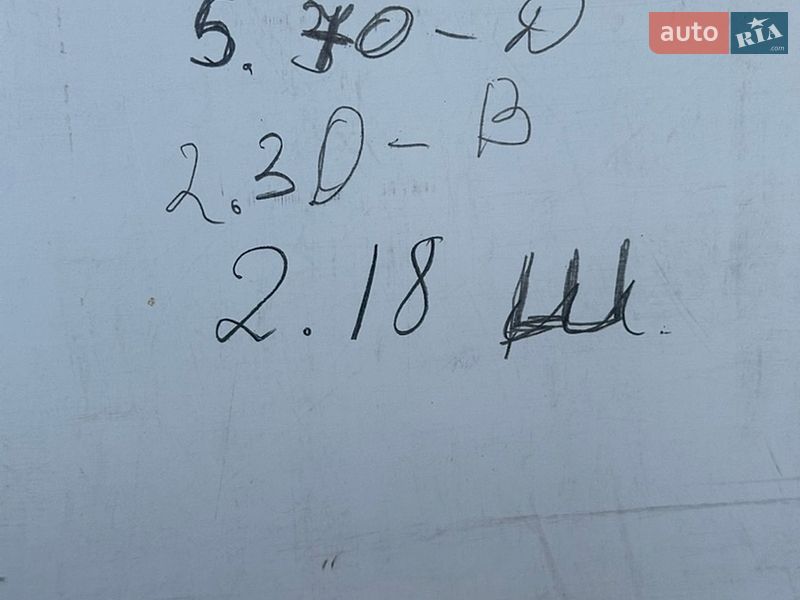 5.70 - Д
2.30 - В
2.18 Ш.
auto RIA .com